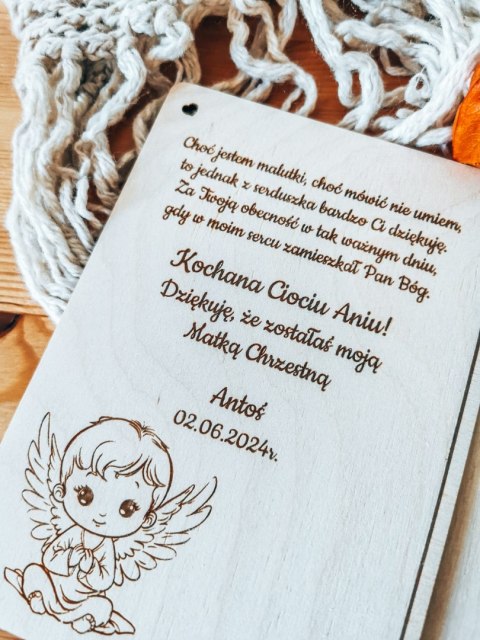 Choć jestem malutki, choć mówić nie umiem,
to jednak z serduszka bardzo Ci dziękuję.
Za Twoją obecność w tak ważnym dniu,
gdy w moim sercu zamieszkał Pan Bóg.
Kochana Ciociu Aniu!
Dziękuję, że zostałaś moją
Matką Chrzestną
Antoś
02.06.2024r.